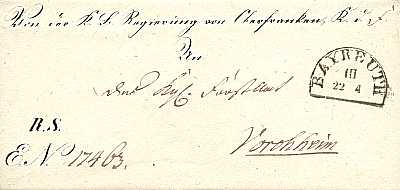 Von der K. B. Regierung von Oberfranken, K. d. F.
An
das Kgl. Forstamt
BAYREUTH
III
22 4
R.S.
E. No 17463.
Vorchheim